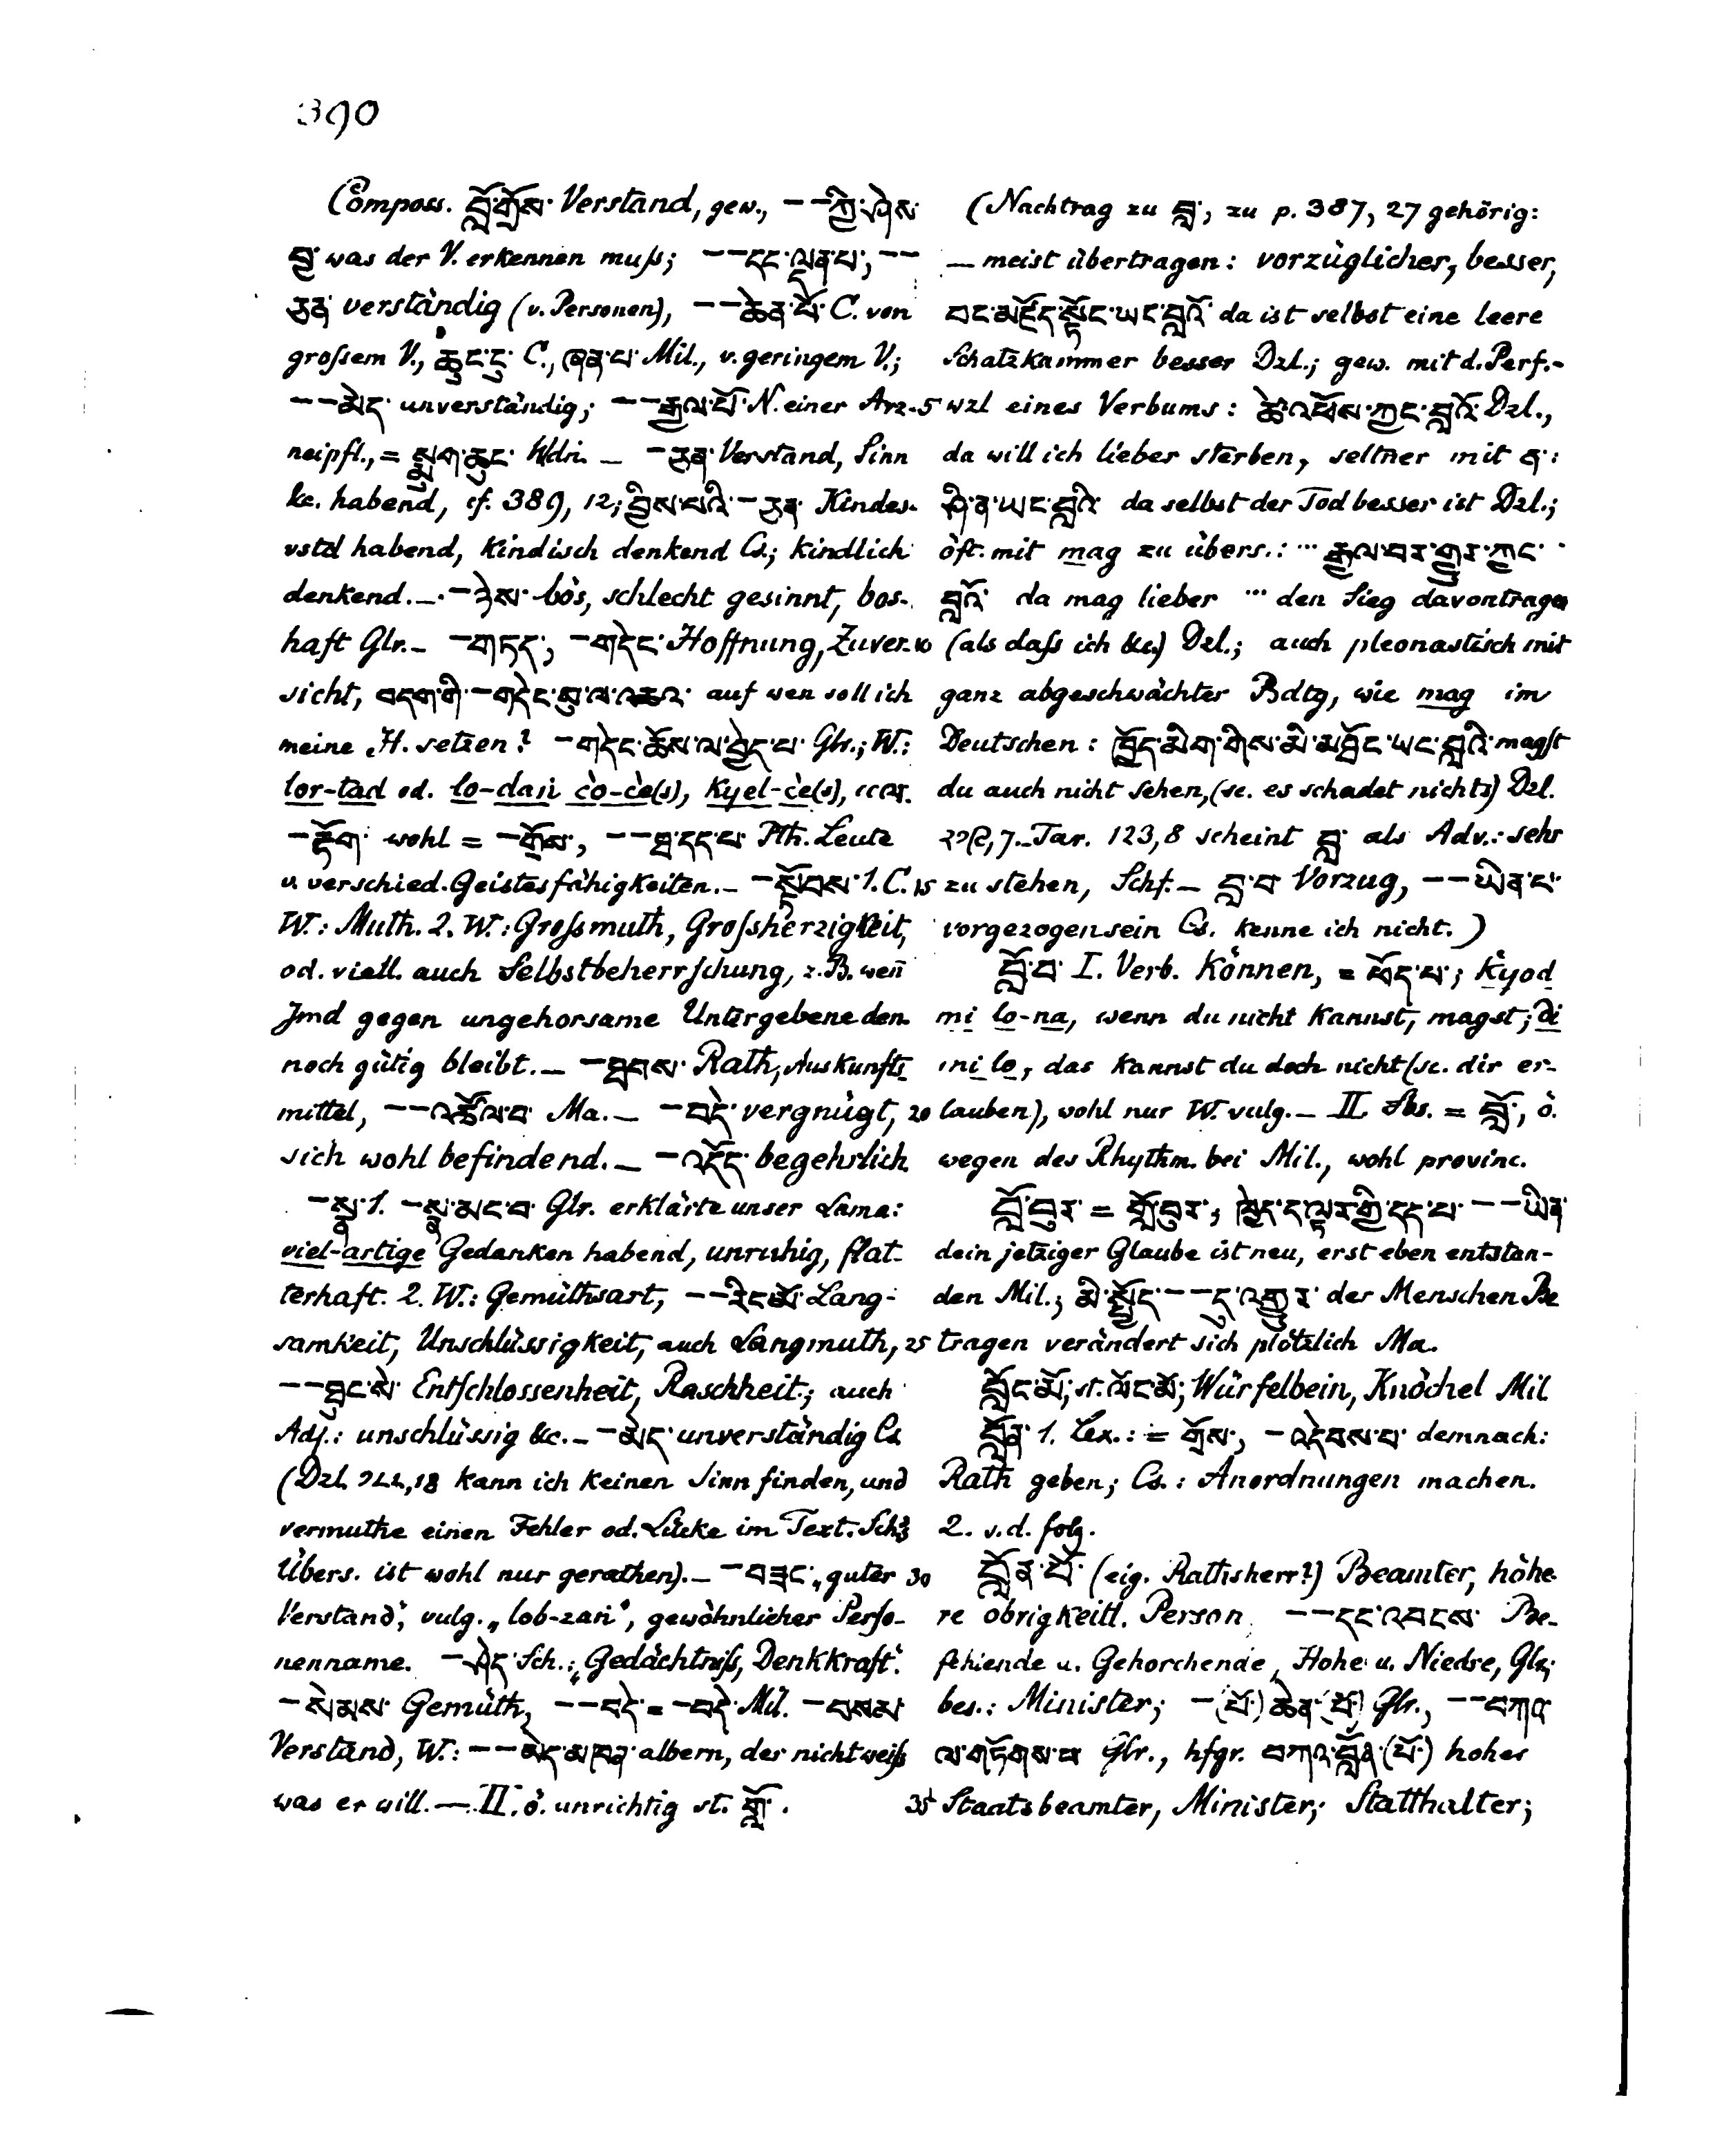 390
Composs. བློ་གྲོས་ Verstand, gew., –– ཀྱི་ཤེས་
བྱ་ was der V. erkennen muß; –– དང་ལྡན་པ་, ––
ཅན་ verständig (v. Personen), –– ཆེན་པོ་ C. von
großem V., ཆུང་ངུ་ C., ཞན་པ་ Mil., v. geringem V.;
–– མེད་ unverständig; –– རྒྱལ་པོ་ N. einer Arz- 5
neipfl., = སྨྱུག་ཆུང་ Wdn. – – ཅན་ Verstand, Sinn
&c. habend, cf. 389, 12; བྱིས་པའི་ – ཅན་ Kindes-
vstd habend, kindisch denkend Cs.; kindlich
denkend. – – ངེས་ bös, schlecht gesinnt, bos-
haft Glr. – – གཏད་, – གདེང་ Hoffnung, Zuver- 10
sicht, བདག་གི་ – གདེང་སུ་ལ་འཆའ་ auf wen soll ich
meine H. setzen? – གདེང་ཆོས་ལ་བྱེད་པ་ Glr.; W.:
lor-tad od. lo-dań čo-čè(s), kyel-čè(s),
– རྟོག་ wohl = – གྲོས་, –– ཐ་དད་པ་ Pth. Leute
v. verschied. Geistesfähigkeiten. – – སྟོབས་ 1. C. 15
W.: Muth. 2. W.: Großmuth, Großherzigkeit,
od. viell. auch Selbstbeherrschung, z. B. weñ
Jmd gegen ungehorsame Untergebene den-
noch gütig bleibt. – – ཐབས་ Rath, Auskunfts-
mittel, –– འཚོལ་བ་ Ma. – – བདེ་ vergnügt, 20
sich wohl befindend. – – འདོད་ begehrlich
– སྣ་ 1. – སྣ་མང་བ་ Glr. erklärte unser Lama:
viel-artige Gedanken habend, unruhig, flat-
terhaft. 2. W.: Gemüthsart, –– རིང་མོ་ Lang-
samkeit, Unschlüssigkeit, auch Langmuth, 25
–– ཐུང་སེ་ Entschlossenheit, Raschheit; auch
Adj.: unschlüssig &c. – – མེད་ unverständig Cs
(Dzl. 18 kann ich keinen Sinn finden, und
vermuthe einen Fehler od. Lücke im Text. Sch's
Übers. ist wohl nur gerathen). – – བཟང་ „guter 30
Verstand", vulg. „lob-zań", gewöhnlicher Perso-
nenname. – ཤེད་ Sch.: „Gedächtniß, Denkkraft".
– སེམས་ Gemüth, –– བདེ་ = – བདེ་ Mil. – བསམ་
Verstand, W.: –– མེད་མཁན་ albern, der nicht weiß
was er will. — II. ö. unrichtig st. གློ་. 35
(Nachtrag zu བླ་, zu p. 387, 27 gehörig:
— meist übertragen: vorzüglicher, besser,
བང་མཛོད་སྟོང་ཡང་བླའོ་ da ist selbst eine leere
Schatzkammer besser Dzl.; gew. mit d. Perf.-
wzl eines Verbums: ཚེ་འཕོས་ཀྱང་བླའོ་ Dzl.,
da will ich lieber sterben, seltner mit ན་:
ཤི་ན་ཡང་བླའི་ da selbst der Tod besser ist Dzl.;
öft. mit mag zu übers.: ··· རྒྱལ་བར་གྱུར་ཀྱང་
བླའོ་ da mag lieber ··· den Sieg davontragen
(als daß ich &c.) Dzl.; auch pleonastisch mit
ganz abgeschwächter Bdtg, wie mag im
Deutschen: ཁྱོད་མིག་གིས་མི་མཐོང་ཡང་བླའི་ magst
du auch nicht sehen, (sc. es schadet nichts) Dzl.
7. – Tar. 123, 8 scheint བླ་ als Adv.: sehr
zu stehen, Schf. – བླ་བ་ Vorzug, –– ཡིན་པ་
vorgezogen sein Cs. kenne ich nicht.)
བློ་བ་ I. Verb. können, = ཕོད་པ་; k̓yod
mi lo-na, wenn du nicht kannst, magst; di
mi lo, das kannst du doch nicht (sc. dir er-
lauben), wohl nur W. vulg. – II Sbs. = བློ་, ö.
wegen des Rhythm. bei Mil., wohl provinc.
བློ་བུར་ = གློ་བུར་, ཁྱེད་ད་ལྟར་གྱི་དད་པ་ –– ཡིན་
dein jetziger Glaube ist neu, erst eben entstan-
den Mil.; མི་སྤྱོད་ –– དུ་འགྱུར་ der Menschen Be
tragen verändert sich plötzlich Ma.
བློང་མོ་, st. ལོང་མོ་, Würfelbein, Knöchel Mil
བློན་ 1. Lex.: = གྲོས་, – འདེབས་པ་ demnach:
Rath geben; Cs.: Anordnungen machen.
2. s. d. folg.
བློན་པོ་ (eig. Rathsherr?) Beamter, höhe-
re obrigkeitl. Person –– དང་འབངས་ Be-
fehlende u. Gehorchende, Hohe u. Niedre, Glr;
bes.: Minister; – (པོ་) ཆེན་ (པོ་) Glr., –– བཀའ་
ལ་གཏོགས་པ Glr., hfgr. བཀའ་བློན་ (པོ་) hoher
Staatsbeamter, Minister; Statthalter;